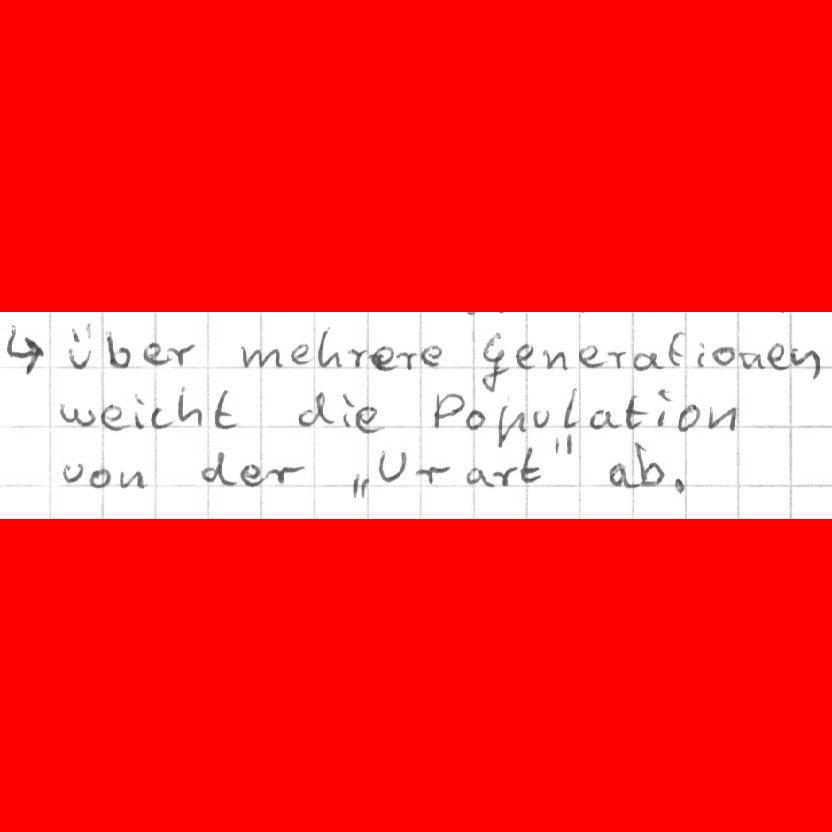 ↳ Über mehrere Generationen
weicht die Population
von der „Urart" ab.